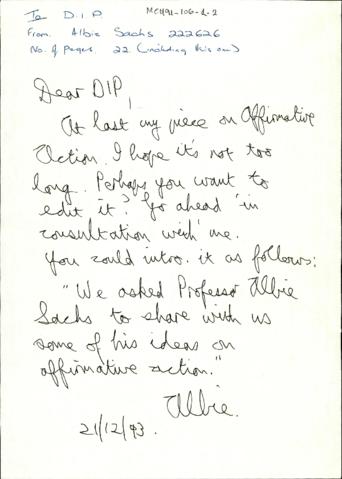 To D.I.P.
MCH91-106-1-2
From Albie Sachs 222626
No. of pages 22 (including this one)
Dear DIP,
At last my piece on Affirmative
Action. I hope it's not too
long. Perhaps you want to
edit it? Go ahead in
consultation with me.
You could intro. it as follows:
"We asked Professor Albie
Sachs to share with us
some of his ideas on
affirmative action."
Albie.
21/12/93.